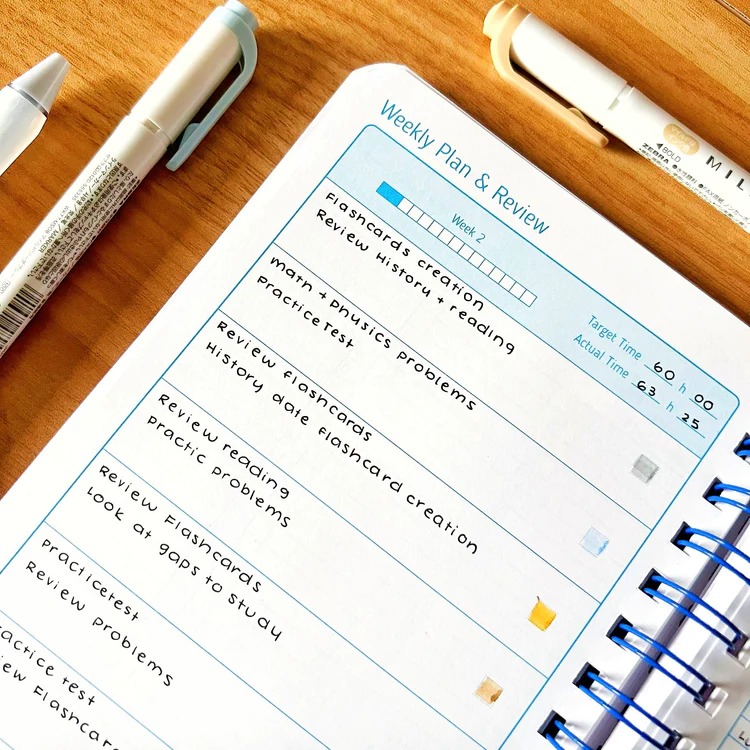 Weekly Plan & Review
Week 2
Target Time 60 h 00
Actual Time 63 h 25
Flashcards creation
Review History + reading
math + physics problems
Practice Test
Review flashcards
History date flashcard creation
Review reading
practic problems
Review Flashcards
Look at gaps to study
practicetest
Review problems
ractice test
iew Flashcar
BOLD
ZEBRA
MIL